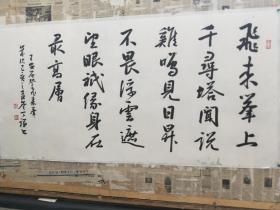 飛来峯上
千尋塔聞說
雞鳴見日昇
不畏浮雲遮
望眼祇緣身在
最高層
王安石登飛来峯